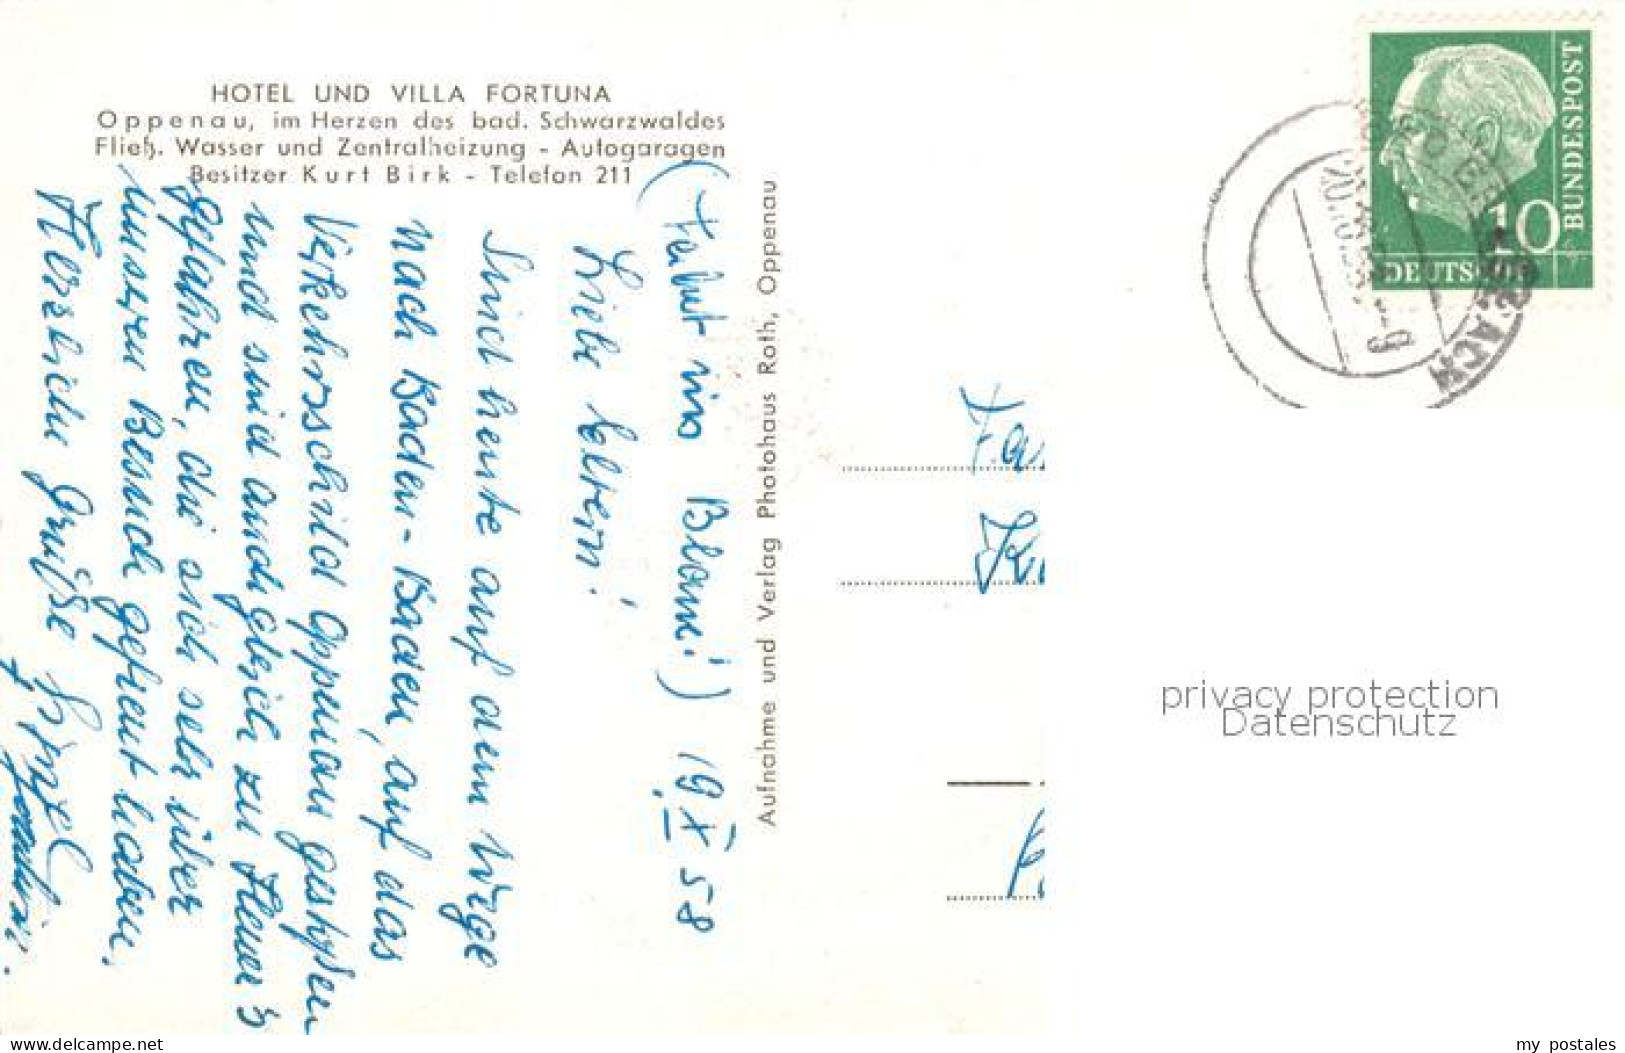 HOTEL UND VILLA FORTUNA
Oppenau, im Herzen des bad. Schwarzwaldes
Fließ. Wasser und Zentralheizung - Autogaragen
Besitzer Kurt Birk - Telefon 211
19. X 58
Liebe Eltern!
Sind heute auf dem Wege
nach Baden-Baden, auf das
Verkehrsschild Oppenau gestoßen
und sind auch gleich zu
gefahren, die sich sehr über
unseren Besuch gefreut haben.
Herzliche Grüße
Aufnahme und Verlag Photohaus Roth, Oppenau
BUNDESPOST
10
DEUTSCHE
privacy protection
Datenschutz
www.delcampe.net
my_postales